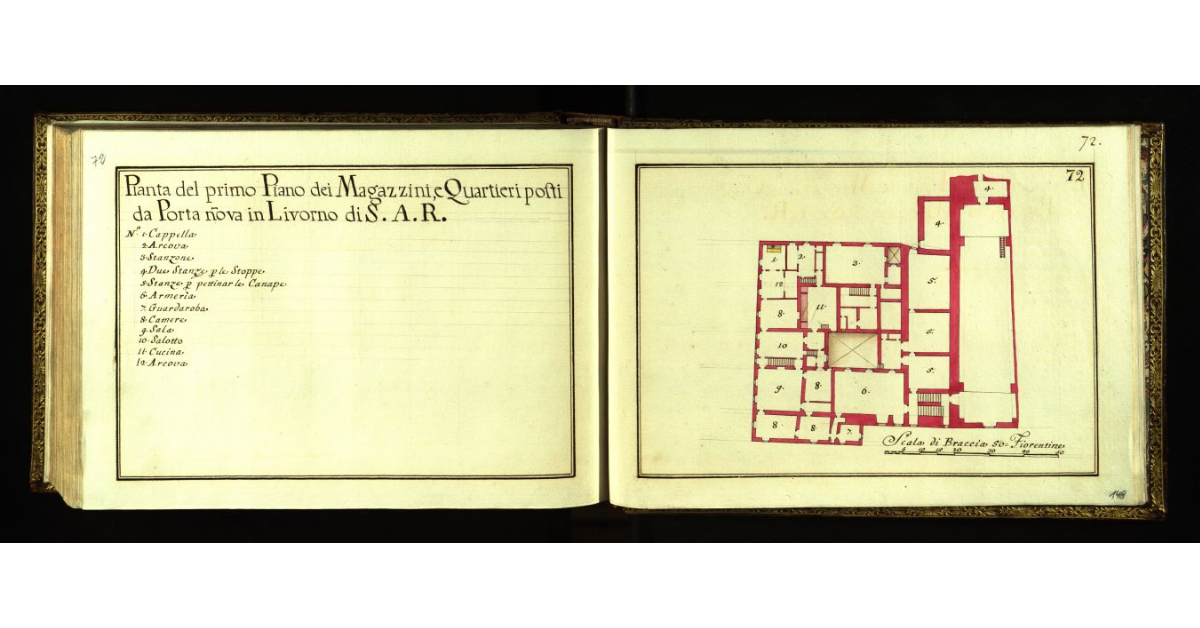 72
Pianta del primo Piano dei Magazzini, e Quartieri posti
da Porta ñova in Livorno di S. A. R.
No. 1. Cappella
2. Arcova
3. Stanzone
4. Due Stanze p le Stoppe
5. Stanze p pettinar le Canape
6. Armeria
7. Guardaroba
8. Camere
9. Sala
10. Salotto
11. Cucina
12. Arcova
72.
72
4.
4.
1. 2. 3.
12
5.
8. 11.
5.
10
5.
9. 8. 6.
8. 8. 7.
Scala di Braccia 50 = Fiorentine
10 20 30 40 50
148